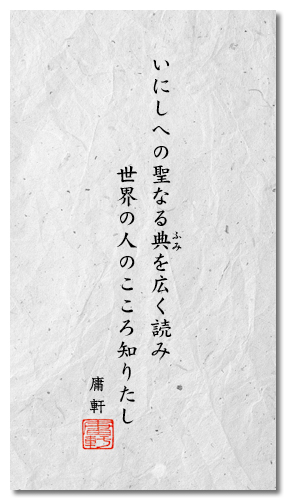 いにしへの聖なる典を広く読み
ふみ
世界の人のこころ知りたし
庸軒